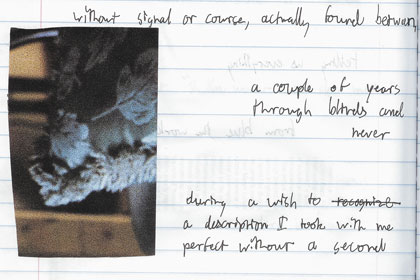 without signal or course, actually found between
a couple of years
through blinds and
never
during a wish to recognize
a description I took with me
perfect without a second